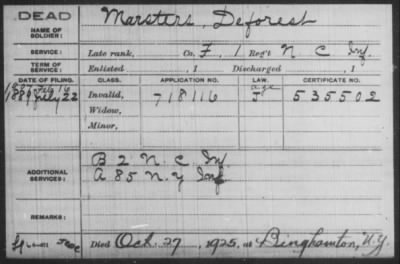 DEAD
NAME OF SOLDIER: Marsters, Deforest
SERVICE: Late rank, Co. F, 1 Reg't N C Inf
TERM OF SERVICE: Enlisted , 1 Discharged , 1
DATE OF FILING. CLASS. APPLICATION NO. LAW. CERTIFICATE NO.
Feb 16 age
1889 July 22 Invalid, 718116 535502
Widow,
Minor,
B 2 N. C. Inf
ADDITIONAL SERVICES: A 85 N. Y Inf
REMARKS:
Died Oct. 27, 1925, at Binghamton, N.Y.